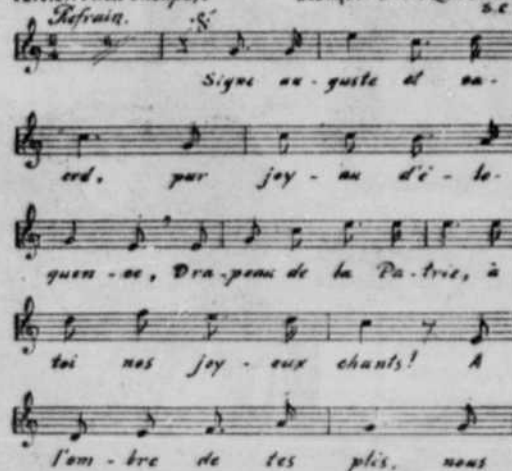 Refrain.
S.C
Signe au-guste et sa-
cré, pur joy-au d'é-lo-
quen-ce, Drapeau de la Pa-trie, à
toi nos joy-eux chants! A
l'om-bre de tes plis, nous